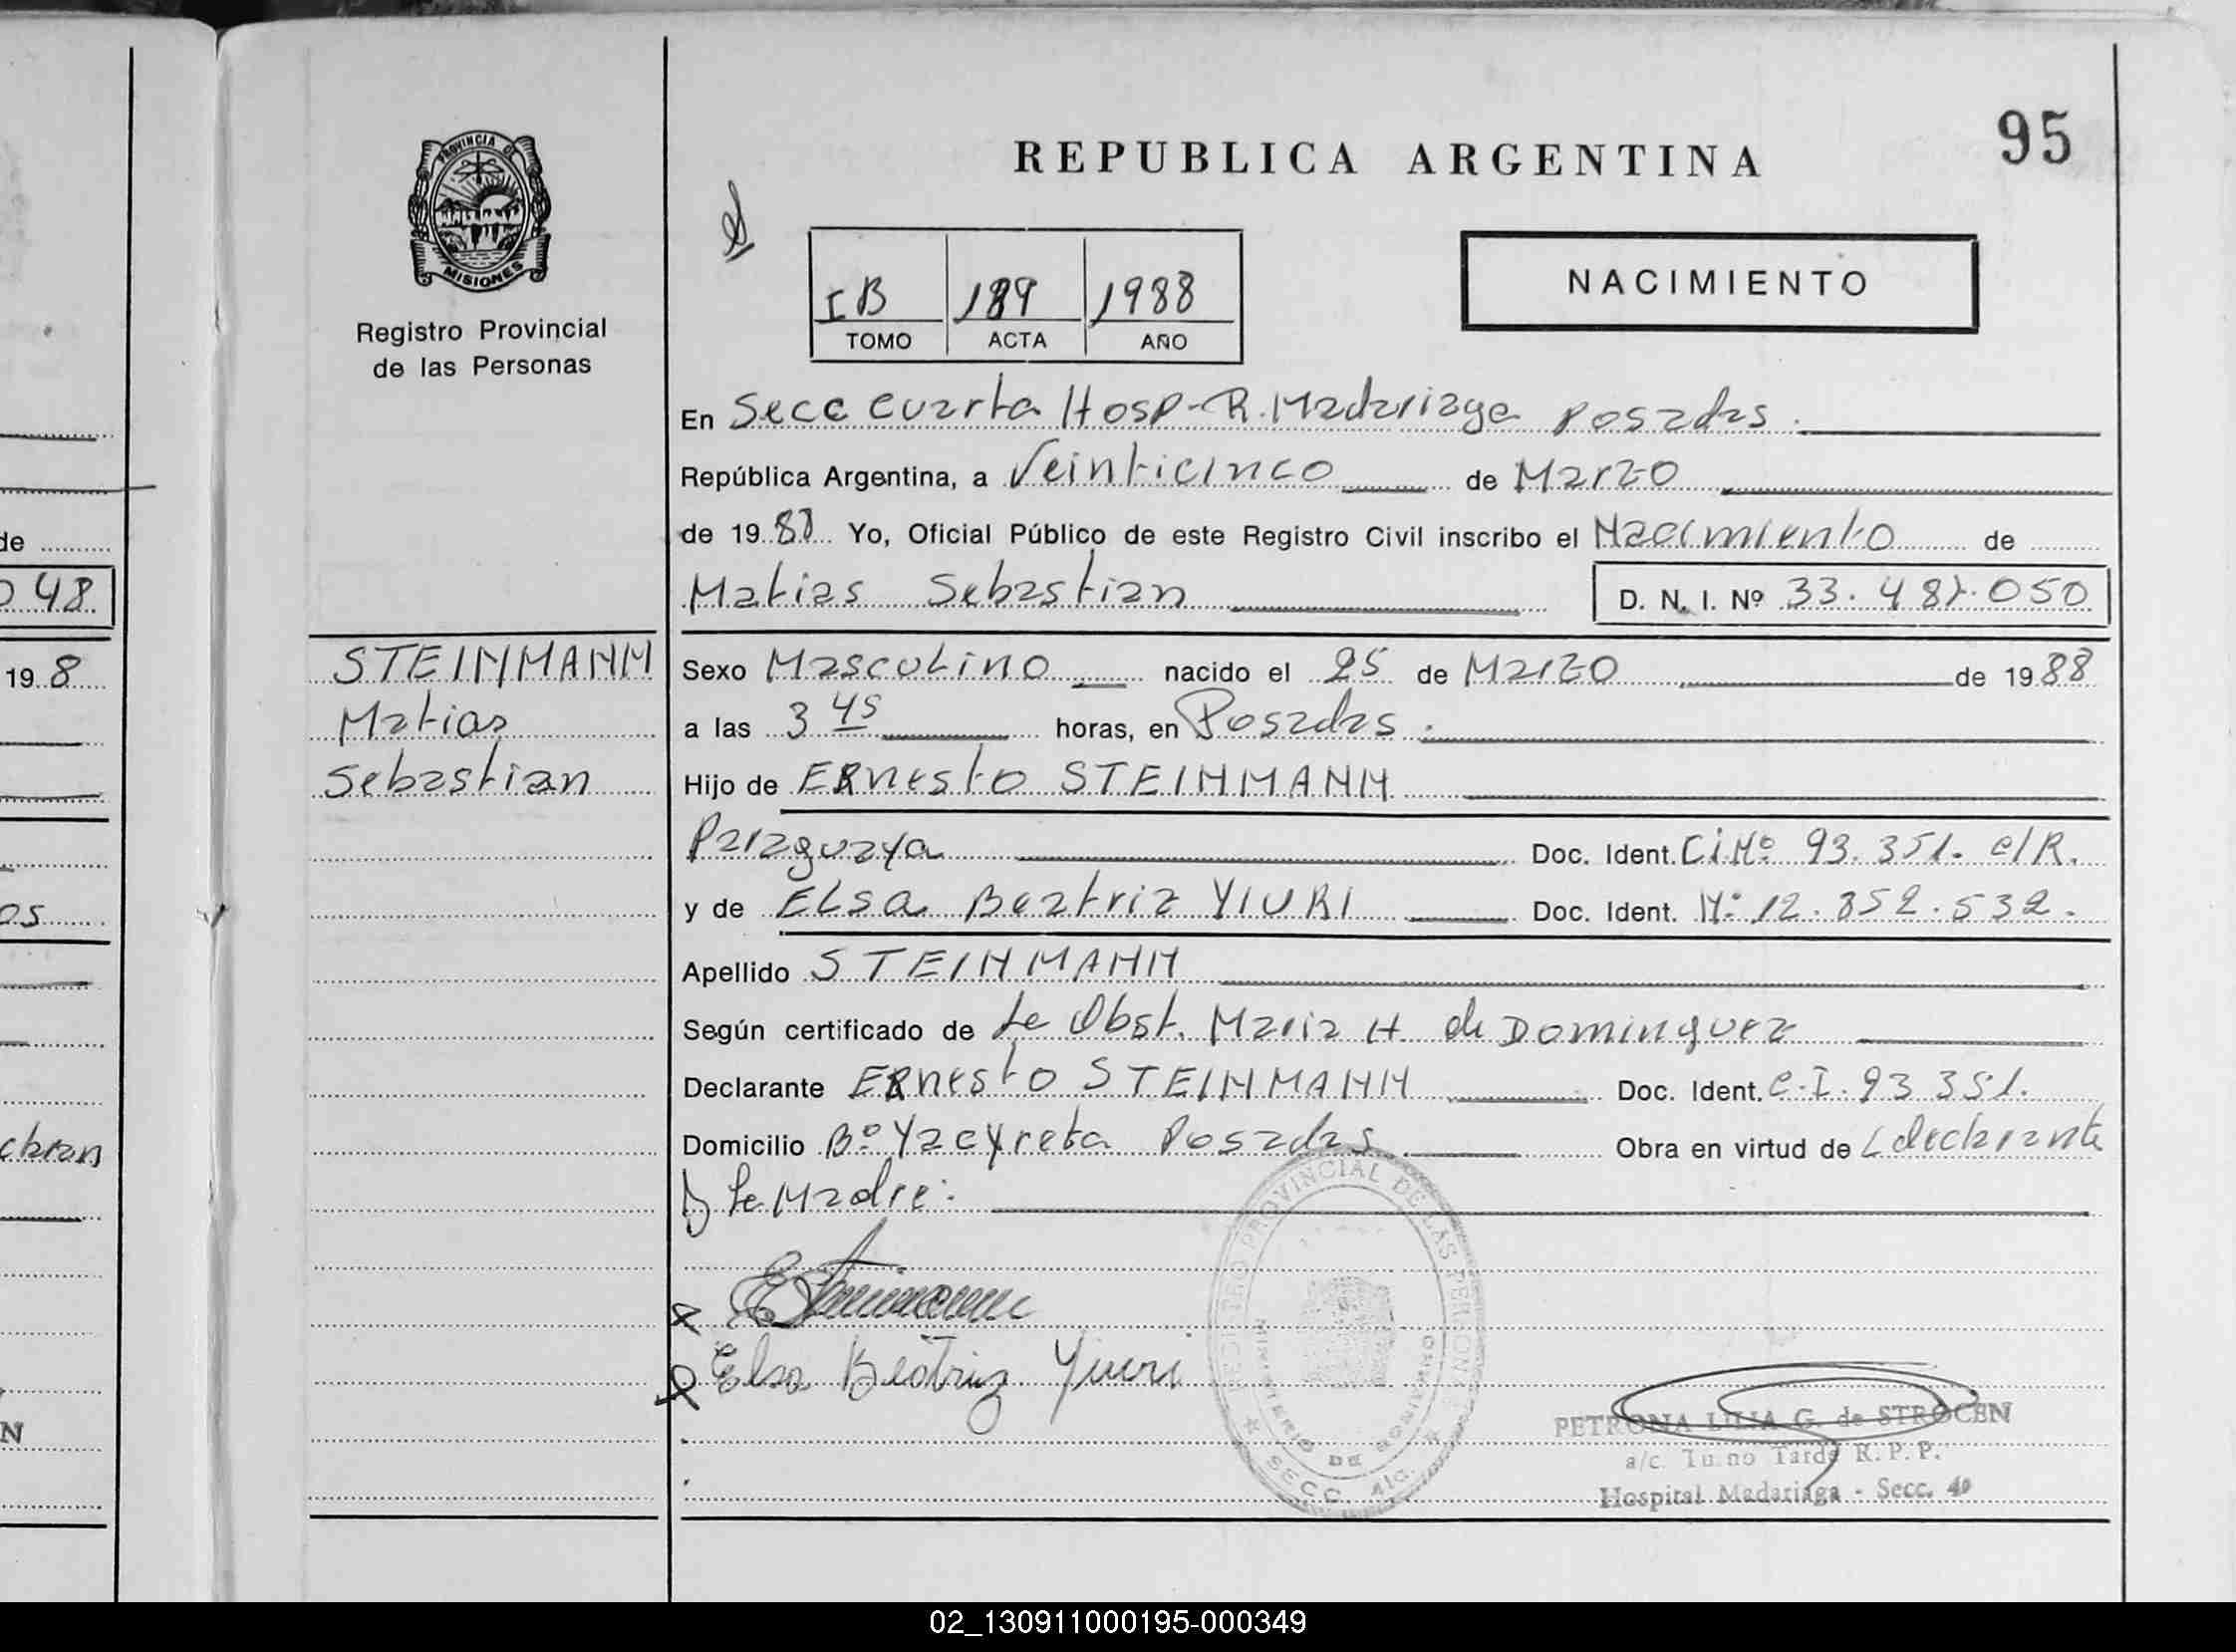 de
048
19 8
os
chran
N
PROVINCIA DE
MISIONES
Registro Provincial
de las Personas
STEINMANN
Matias
Sebastian
95
REPUBLICA ARGENTINA
IB 189 1988
TOMO ACTA AÑO
NACIMIENTO
En Secc cuarta Hosp-R. Madariaga Posadas.
República Argentina, a Veinticinco de Marzo
de 1988 Yo, Oficial Público de este Registro Civil inscribo el Nacimiento de
Matias Sebastian D. N. I. Nº 33.487.050
Sexo Masculino nacido el 25 de Marzo de 1988
a las 3 45 horas, en Posadas.
Hijo de Ernesto STEINMANN
Paraguaya Doc. Ident. Ci.Nº 93.351. c/R.
y de Elsa Beatriz YIURI Doc. Ident. Nº 12.852.532.
Apellido STEINMANN
Según certificado de la Obst. Maria H. de Dominguez
Declarante Ernesto STEINMANN Doc. Ident. C.I. 93 351.
Domicilio Bº Yacyreta Posadas Obra en virtud de declarante
y la Madre.
Elsa Beatriz Yiuri
REGISTRO PROVINCIAL DE LAS PERSONAS
MINISTERIO DE GOBIERNO
SECC. 4ta.
PETRONA LILIA G. de STROCEN
a/c. Turno Tarde R. P. P.
Hospital Madariaga - Secc. 4ª
02_130911000195-000349